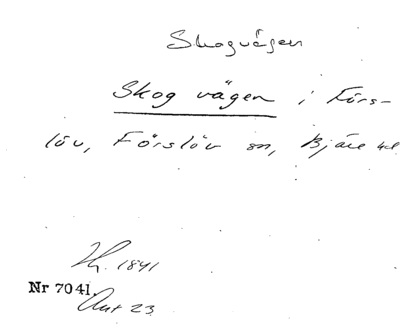 Skogvägen
Skog vägen i Förs-
löv, Förslöv sn, Bjäre hd
Nr 7041.
1841
Akt 23